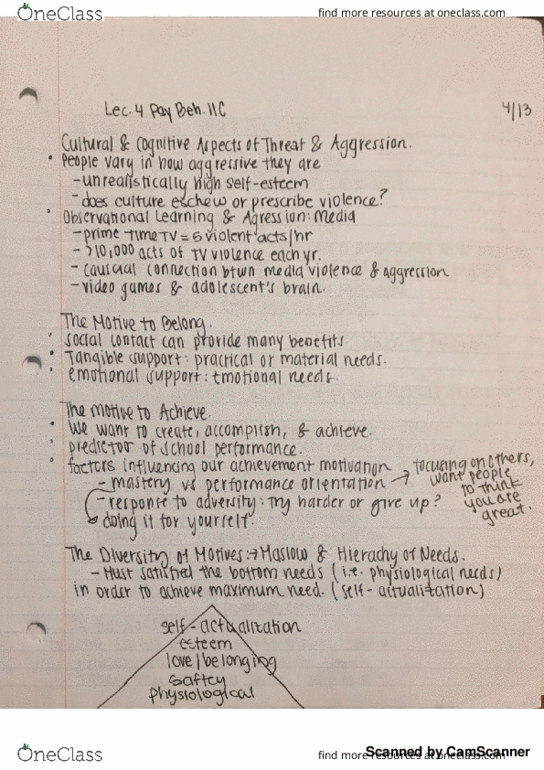 OneClass
find more resources at oneclass.com
Lec. 4 Psy Beh. 11C
4/13
Cultural & Cognitive Aspects of Threat & Aggression.
• People vary in how aggressive they are
- unrealistically high self-esteem
- does culture eschew or prescribe violence?
• Observational Learning & Agression: Media
- prime time TV = 5 violent acts/hr
- >10,000 acts of TV violence each yr.
- causcial connection btwn media violence & aggression
- video games & adolescent's brain.
The Motive to Belong.
• Social contact can provide many benefits
• Tangible support: practical or material needs.
• emotional support: emotional needs.
The motive to Achieve.
• We want to create, accomplish, & achieve.
• predictor of school performance.
• factors influencing our achievement motivation
- mastery vs performance orientation → focusing on others, want people to think you are great.
- response to adversity: try harder or give up?
doing it for yourself.
The Diversity of Motives :→ Maslow & Hierachy of Needs.
- Must satisfied the bottom needs (i.e. physiological needs)
in order to achieve maximum need. (self-actualization)
self-actualization
esteem
love/belonging
saftey
physiological
OneClass
find more resources at oneclass.com
Scanned by CamScanner